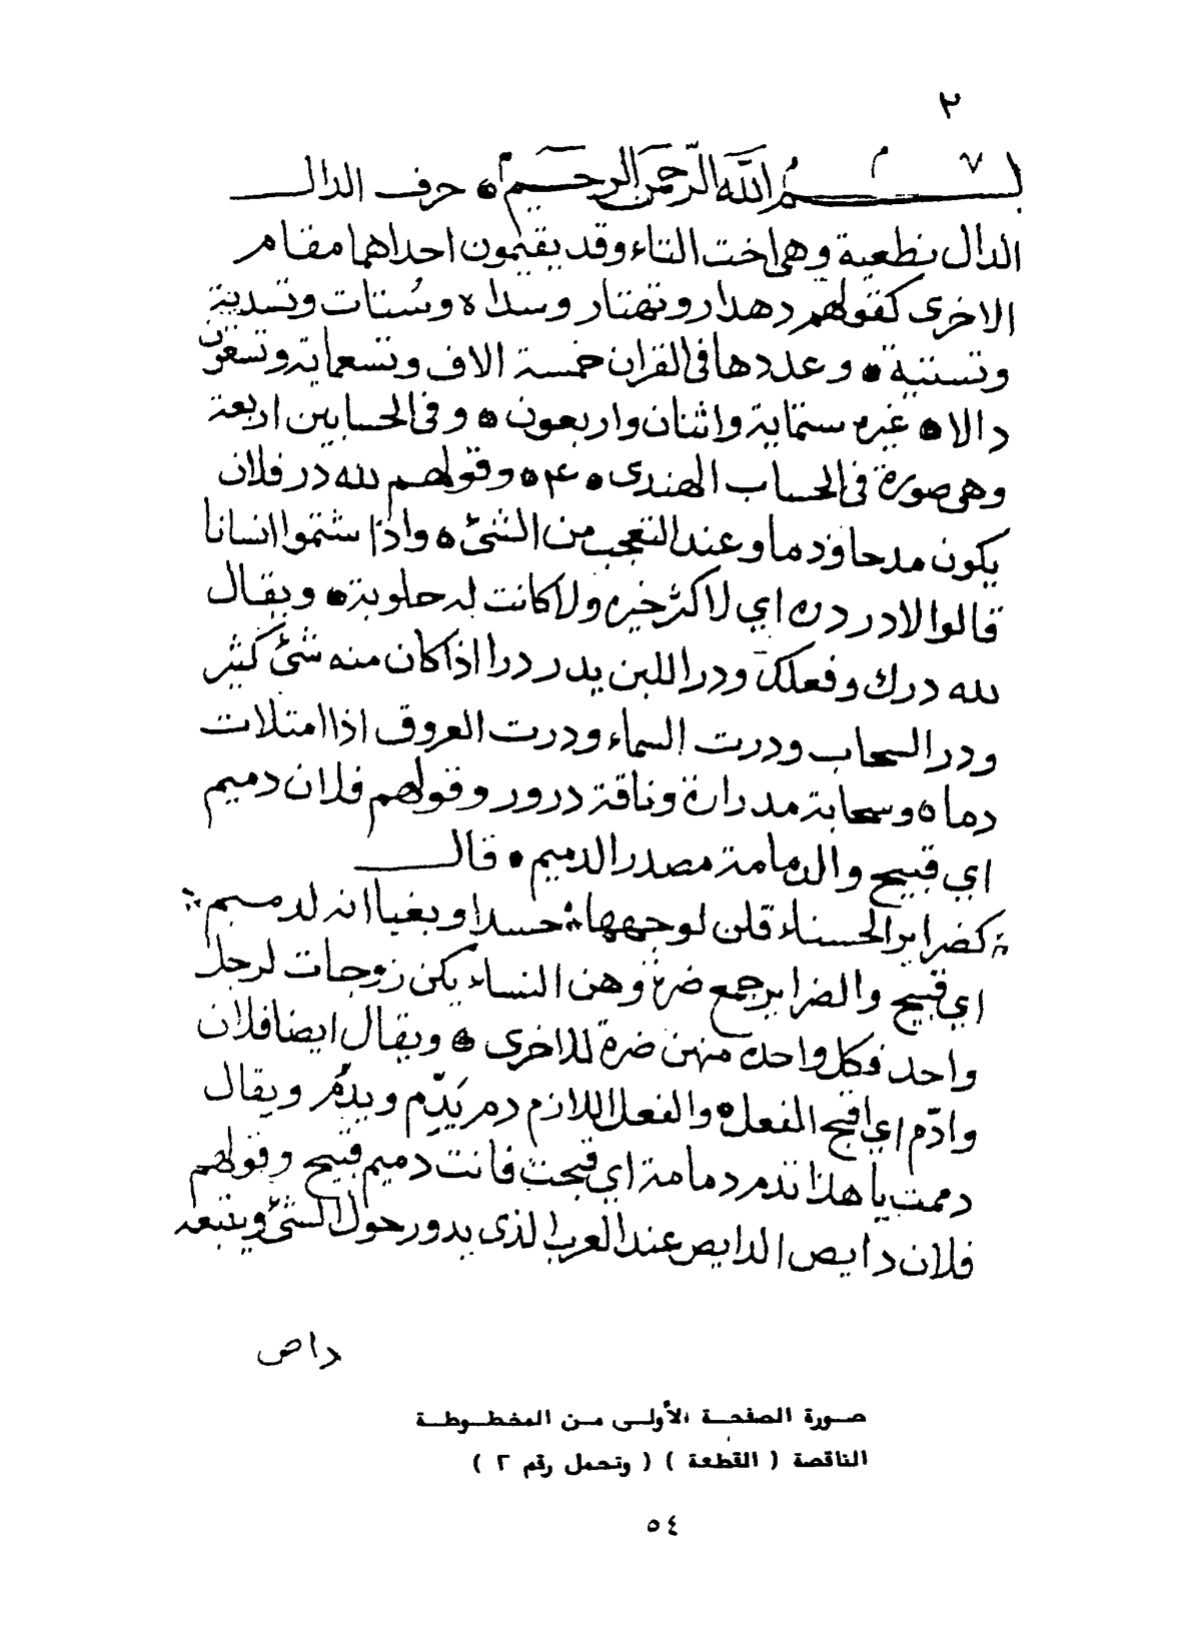 ٢
بسم الله الرحمن الرحيم ه حرف الدال
الدال نطعية وهي اخت التاء وقد يقيمون احداهما مقام
الاخرى كقولهم دهدار وتهتار وسداه وستات وتسدية
وتستية ه وعددها في القران خمسة الاف وتسعماية وتسعون
دالا ه غيره ستماية واثنان واربعون ه وفي الحسابين اربعة
وهي صورة في الحساب الهندى ه ۴ ه وقولهم لله در فلان
يكون مدحا وذما وعند التعجب من الشئ ه واذا شتموا انسانا
قالوا لا در دره اي لا كثر خيره ولا كانت له حلوبة ه ويقال
لله درك وفعلك ودر اللبن يدر درا اذا كان منه شئ كثير
ودر السحاب ودرت السماء ودرت العروق اذا امتلات
دما ه وسحابة مدرارة وناقة درور وقولهم فلان دميم
اي قبيح والدمامة مصدر الدميم ه قال
كضراير الحسناء قلن لوجهها حسدا وبغيا انه لدميم
اي قبيح والضراير جمع ضرة وهن النساء يكن زوجات لرجل
واحد فكل واحدة منهن ضرة للاخرى ه ويقال ايضا فلان
وادّم اي اقبح الفعل ه والفعل اللازم دم يَدِّم ويدُم ويقال
دممت يا هذا تدم دمامة اي قبحت فانت دميم قبيح وقولهم
فلان دايص الدايص عند العرب الذى يدور حول الشئ ويتبعه
داص
صورة الصفحة الأولى من المخطوطة
الناقصة ( القطعة ) ( وتحمل رقم ٢ )
٥٤